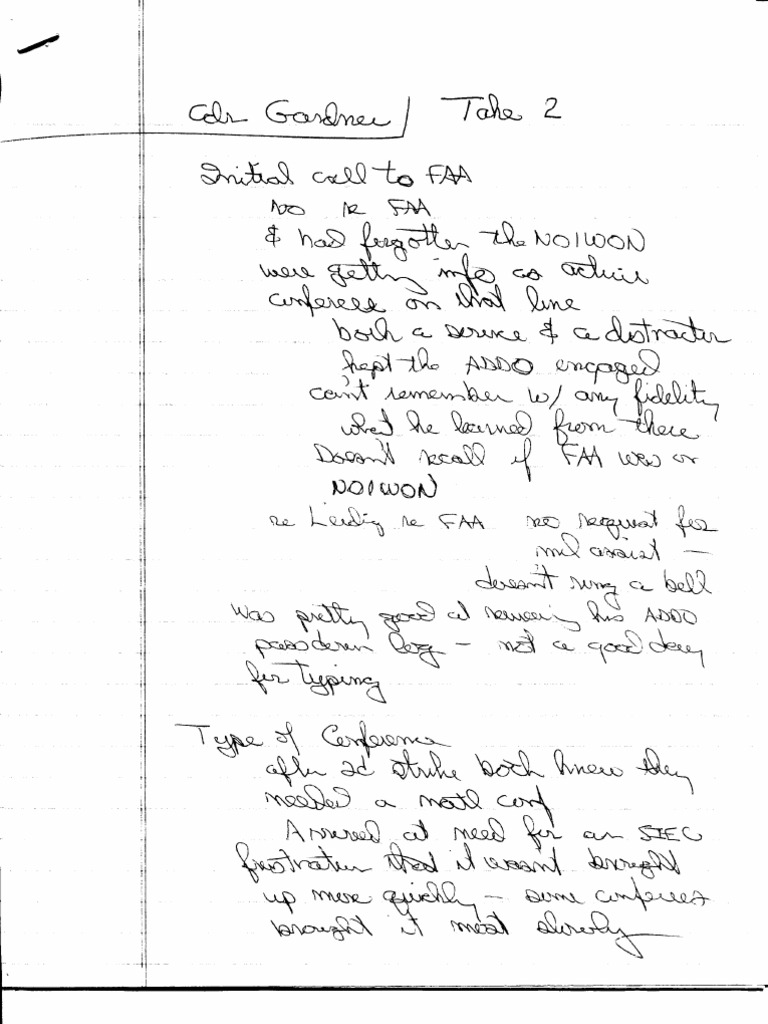 Cdr Gardner / Take 2
Initial call to FAA
no re FAA
& had forgotten the NOIWON
were getting info as active
conferee on that line
both a service & a distracter
kept the ADDO engaged
can't remember w/ any fidelity
what he learned from there
Doesn't recall if FAA was on
NOIWON
re Leidig re FAA no request for
mil assist —
doesn't ring a bell
Was pretty good at his ADDO
passdown log — not a good day
for typing
Type of Conference
after 2d strike both knew they
needed a natl conf
Arrived at need for an SIEC
frustration that it wasn't brought
up more quickly — some conferees
brought it most slowly